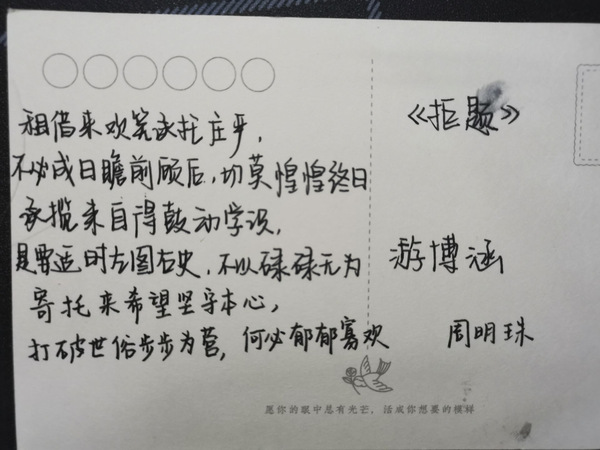 《拒题》
租借来欢笑承托庄平，
不必成日瞻前顾后，切莫惶惶终日
承揽来自得鼓动学识，
是要适时左图右史，不以碌碌无为
寄托来希望坚守本心，
打破世俗步步为营，何必郁郁寡欢
游博涵
周明珠
愿你的眼中总有光芒，活成你想要的模样